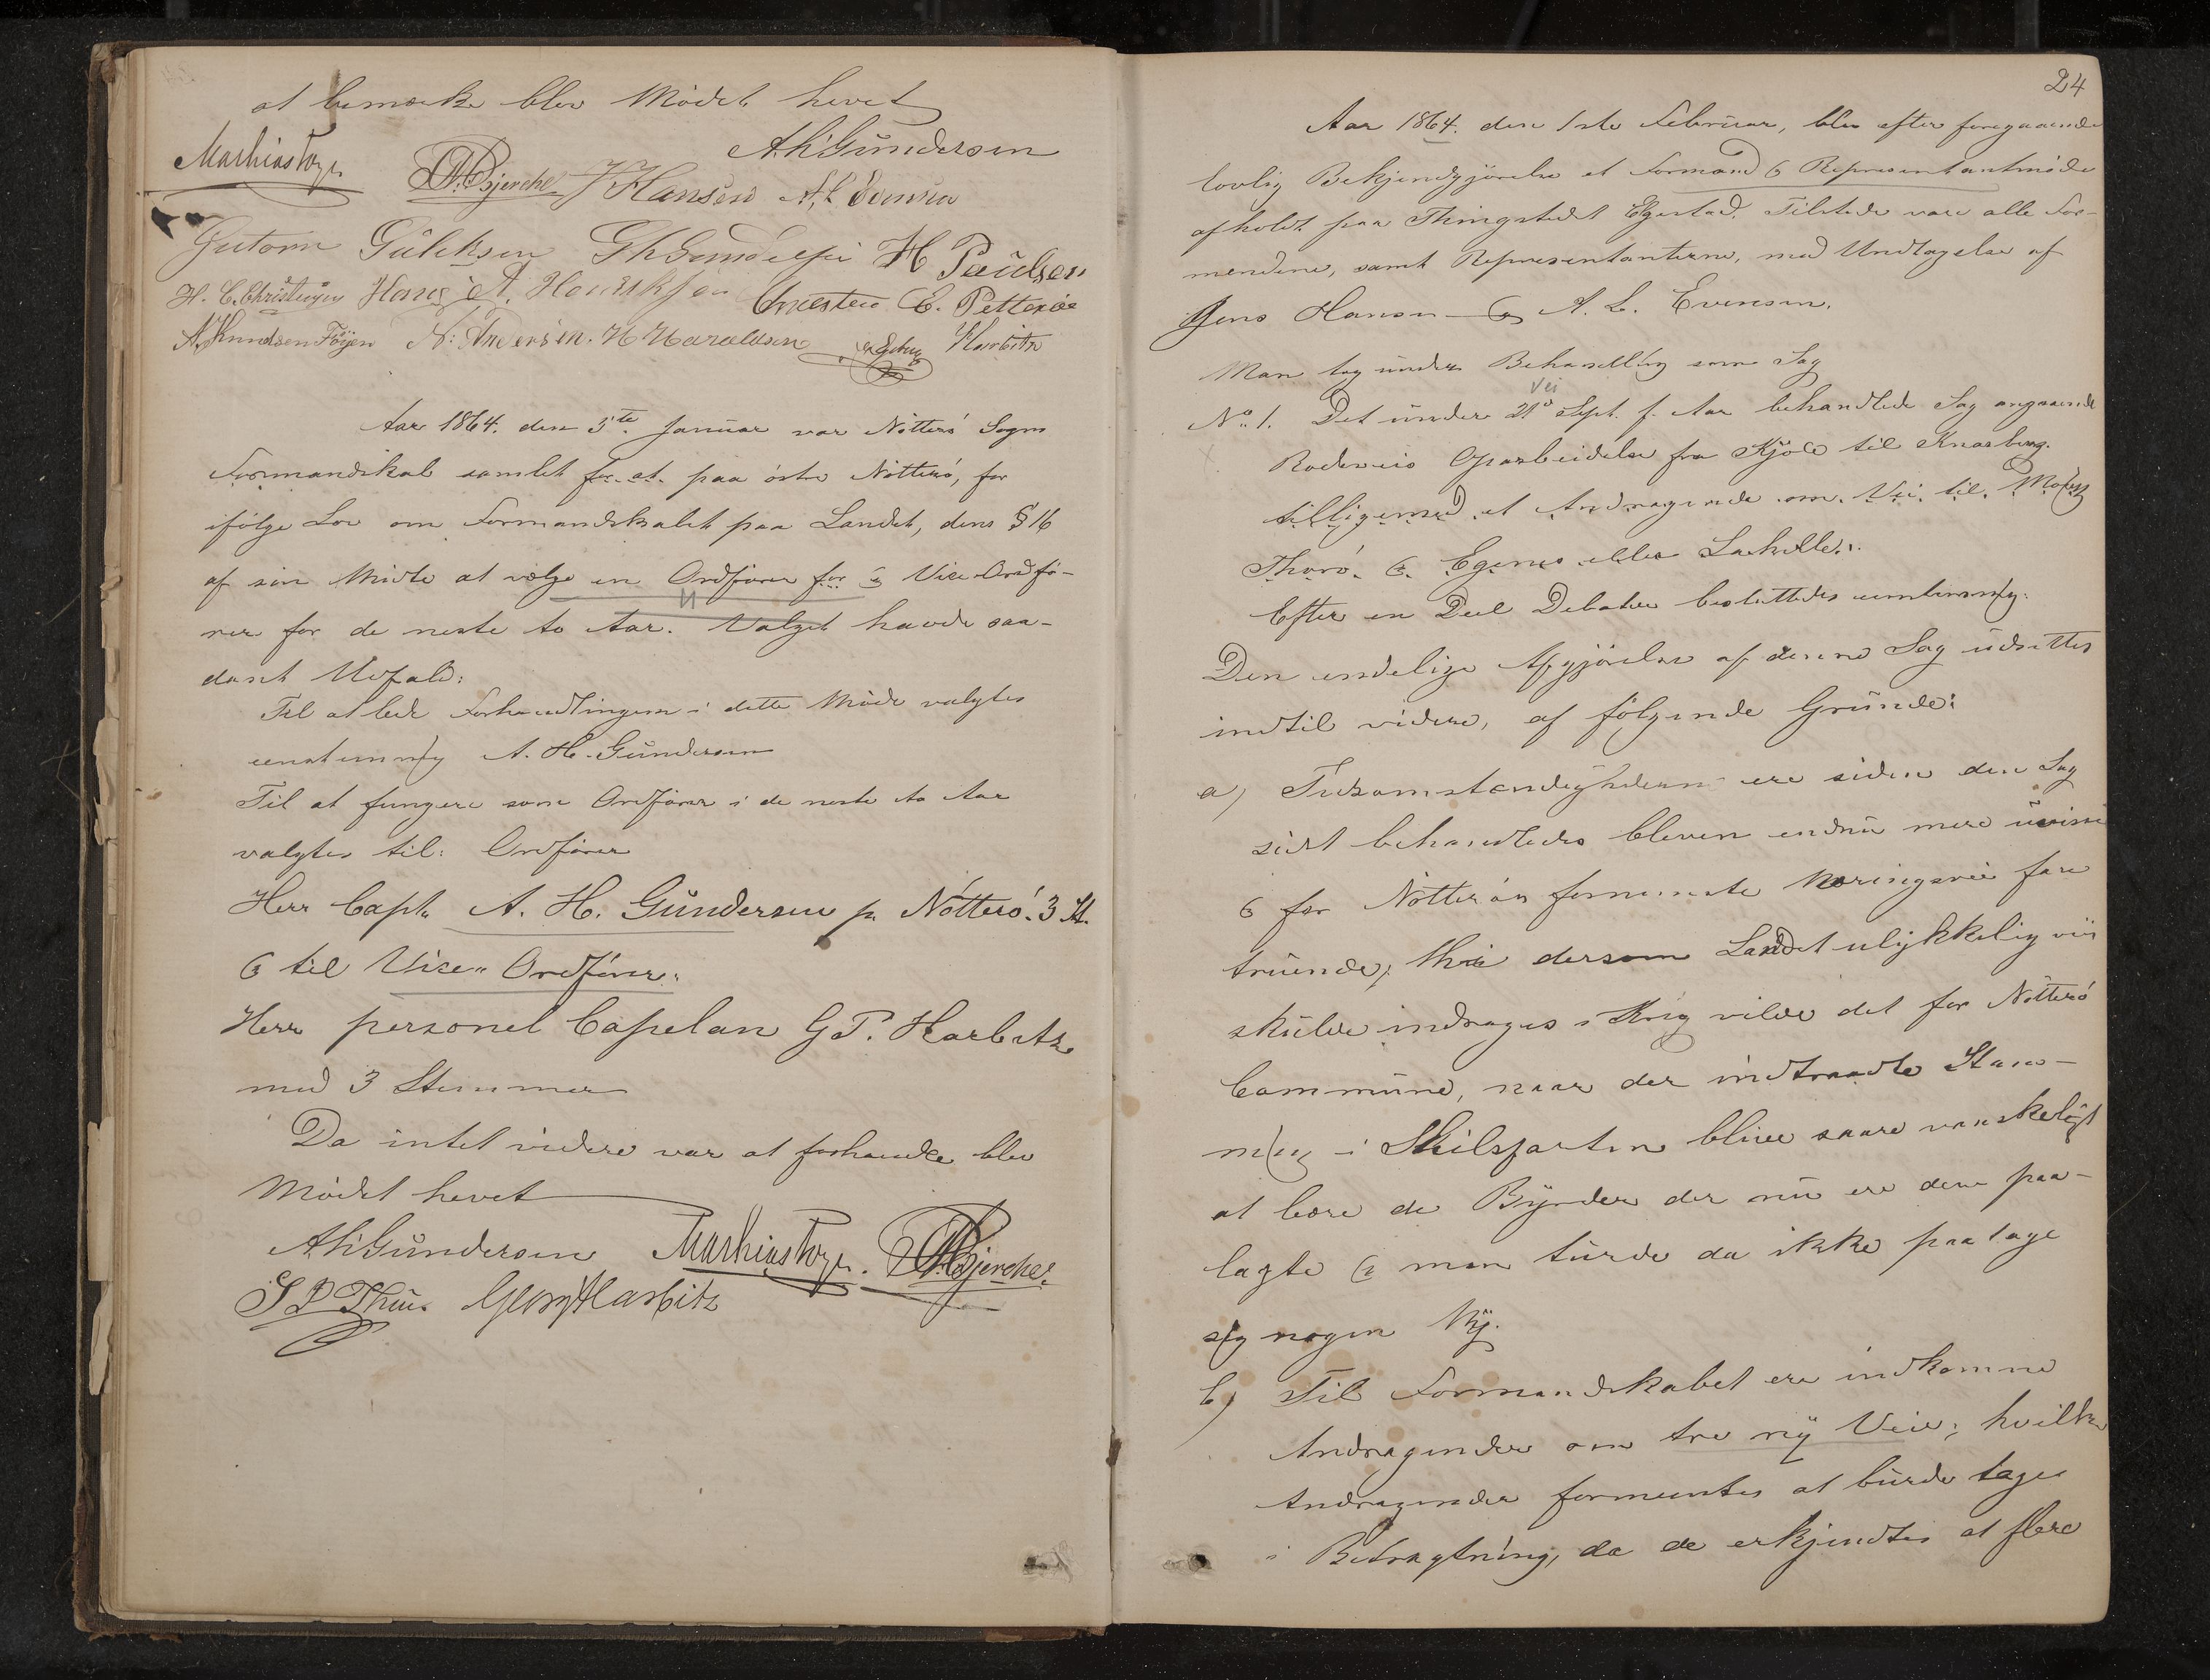 at bemærke blev Mødet hevet
A.H. Gundersen
Mathias Foyn O.A. Bjerche J Hansen A. L. Evensen
Gutorm Gulliksen H Paulsen
H. C. Christensen Hans A. Henriksen E. Petterøe
A. Knudsen Föyen N: Andersen. H Haraldsen Harbitz
Aar 1864. den 5te Januar var Nötterö Sogns
Formandskab samlet paa östre Nötterö, for
ifölge Lov om Formandskabet paa Landet, dens § 16
af sin Midte at vælge en Ordförer for & Vise-Ordfö-
rer for de neste to Aar. Valget havde saa-
dant Udfald:
Til at lede Forhandlingen i dette Möde valgtes
eenstemmig A. H. Gundersen
Til at fungere som Ordförer i de neste to Aar
valgtes til: Ordförer
Herr Capt. A. H. Gundersen p. Nötterö. 3 St.
& til Vise-Ordförer:
Herr personel Capelan G P. Harbitz
med 3 Stemmer
Da intet videre var at forhandle blev
Mödet hevet
A H Gundersen Mathias Foyn. O.A. Bjercke.
S P Thue Georg Harbitz
24
Aar 1864. den 1ste Februar, blev efter foregaaende
lovlig Bekjendgjörelse et Formand & Representantmöde
afholdt paa Thingstedet Elgestad. Tilstede vare alle For-
mendene, samt Representanterne, med Undtagelse af
Jens Hansen & A. L. Evensen.
Man tog under Behandling som Sag
Vei
No. 1. Det under 21d Sept. f. Aar behandlede Sag angaaende
Rodeveis Oparbeidelse fra Kjöle til Knarberg.
tilligemed et Andragende om Vei til
Thorö. & Egenes eller
Efter en Deel Debatter besluttedes eenstemmig:
Den endelige Afgjörelse af denne Sag udsættes
indtil videre, af fölgende Grunde:
a) Tidsomstændighederne ere siden den Sag
sidst behandledes bleven endnu mere uvisse
& for Nötteröes fornemste Næringsvei fare
truende; thi dersom Landet ulykkelig viis
skulde indrages i Krig vilde det for Nötterö
Commune, naar der indtraadte Stans-
ning i Skibsfarten blive saare vanskeligt
at bære de Byrder der nu ere dem paa-
lagte & man turde da ikke paatage
sig nogen Ny.
b) Til Formandskabet ere indkomne
Andragender om tre ny Veie; hvilke
Andragender formeentes at burde tages
i Betragtning, da de erkjendtes at flere